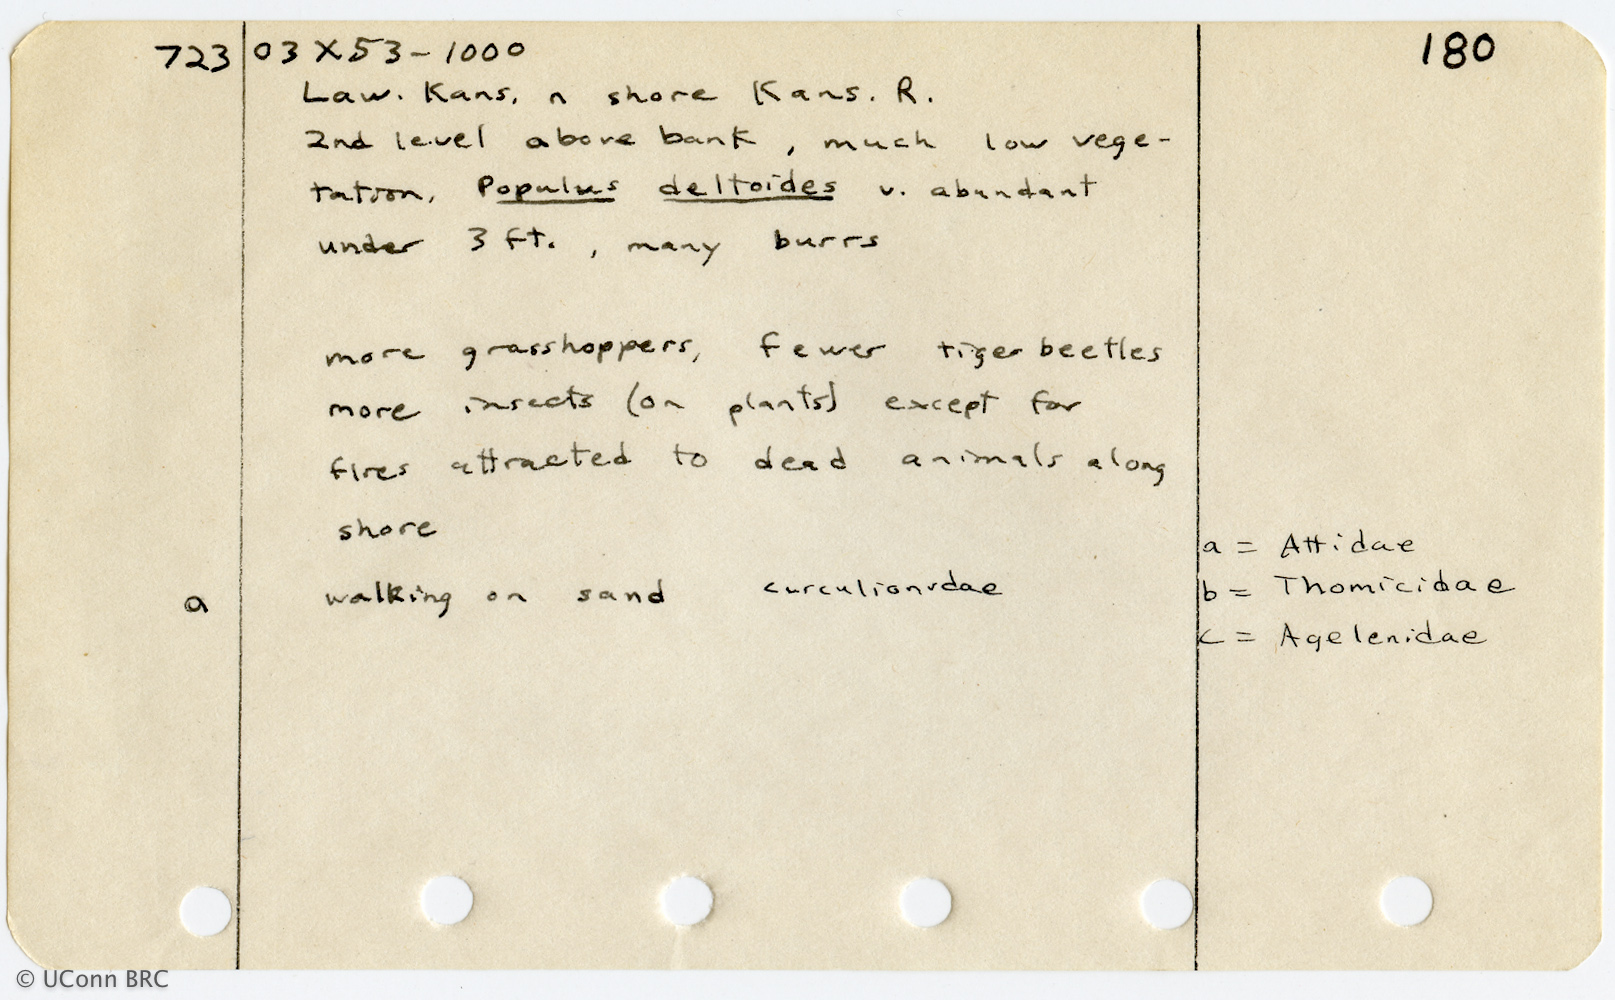 723 03 X 53 - 1000 180
Law. Kans. n shore Kans. R.
2nd level above bank, much low vege-
tation, Populus deltoides v. abundant
under 3 ft., many burrs
more grasshoppers, fewer tiger beetles
more insects (on plants) except for
flies attracted to dead animals along
shore
a walking on sand curculionidae
a = Attidae
b = Thomicidae
c = Agelenidae
© UConn BRC